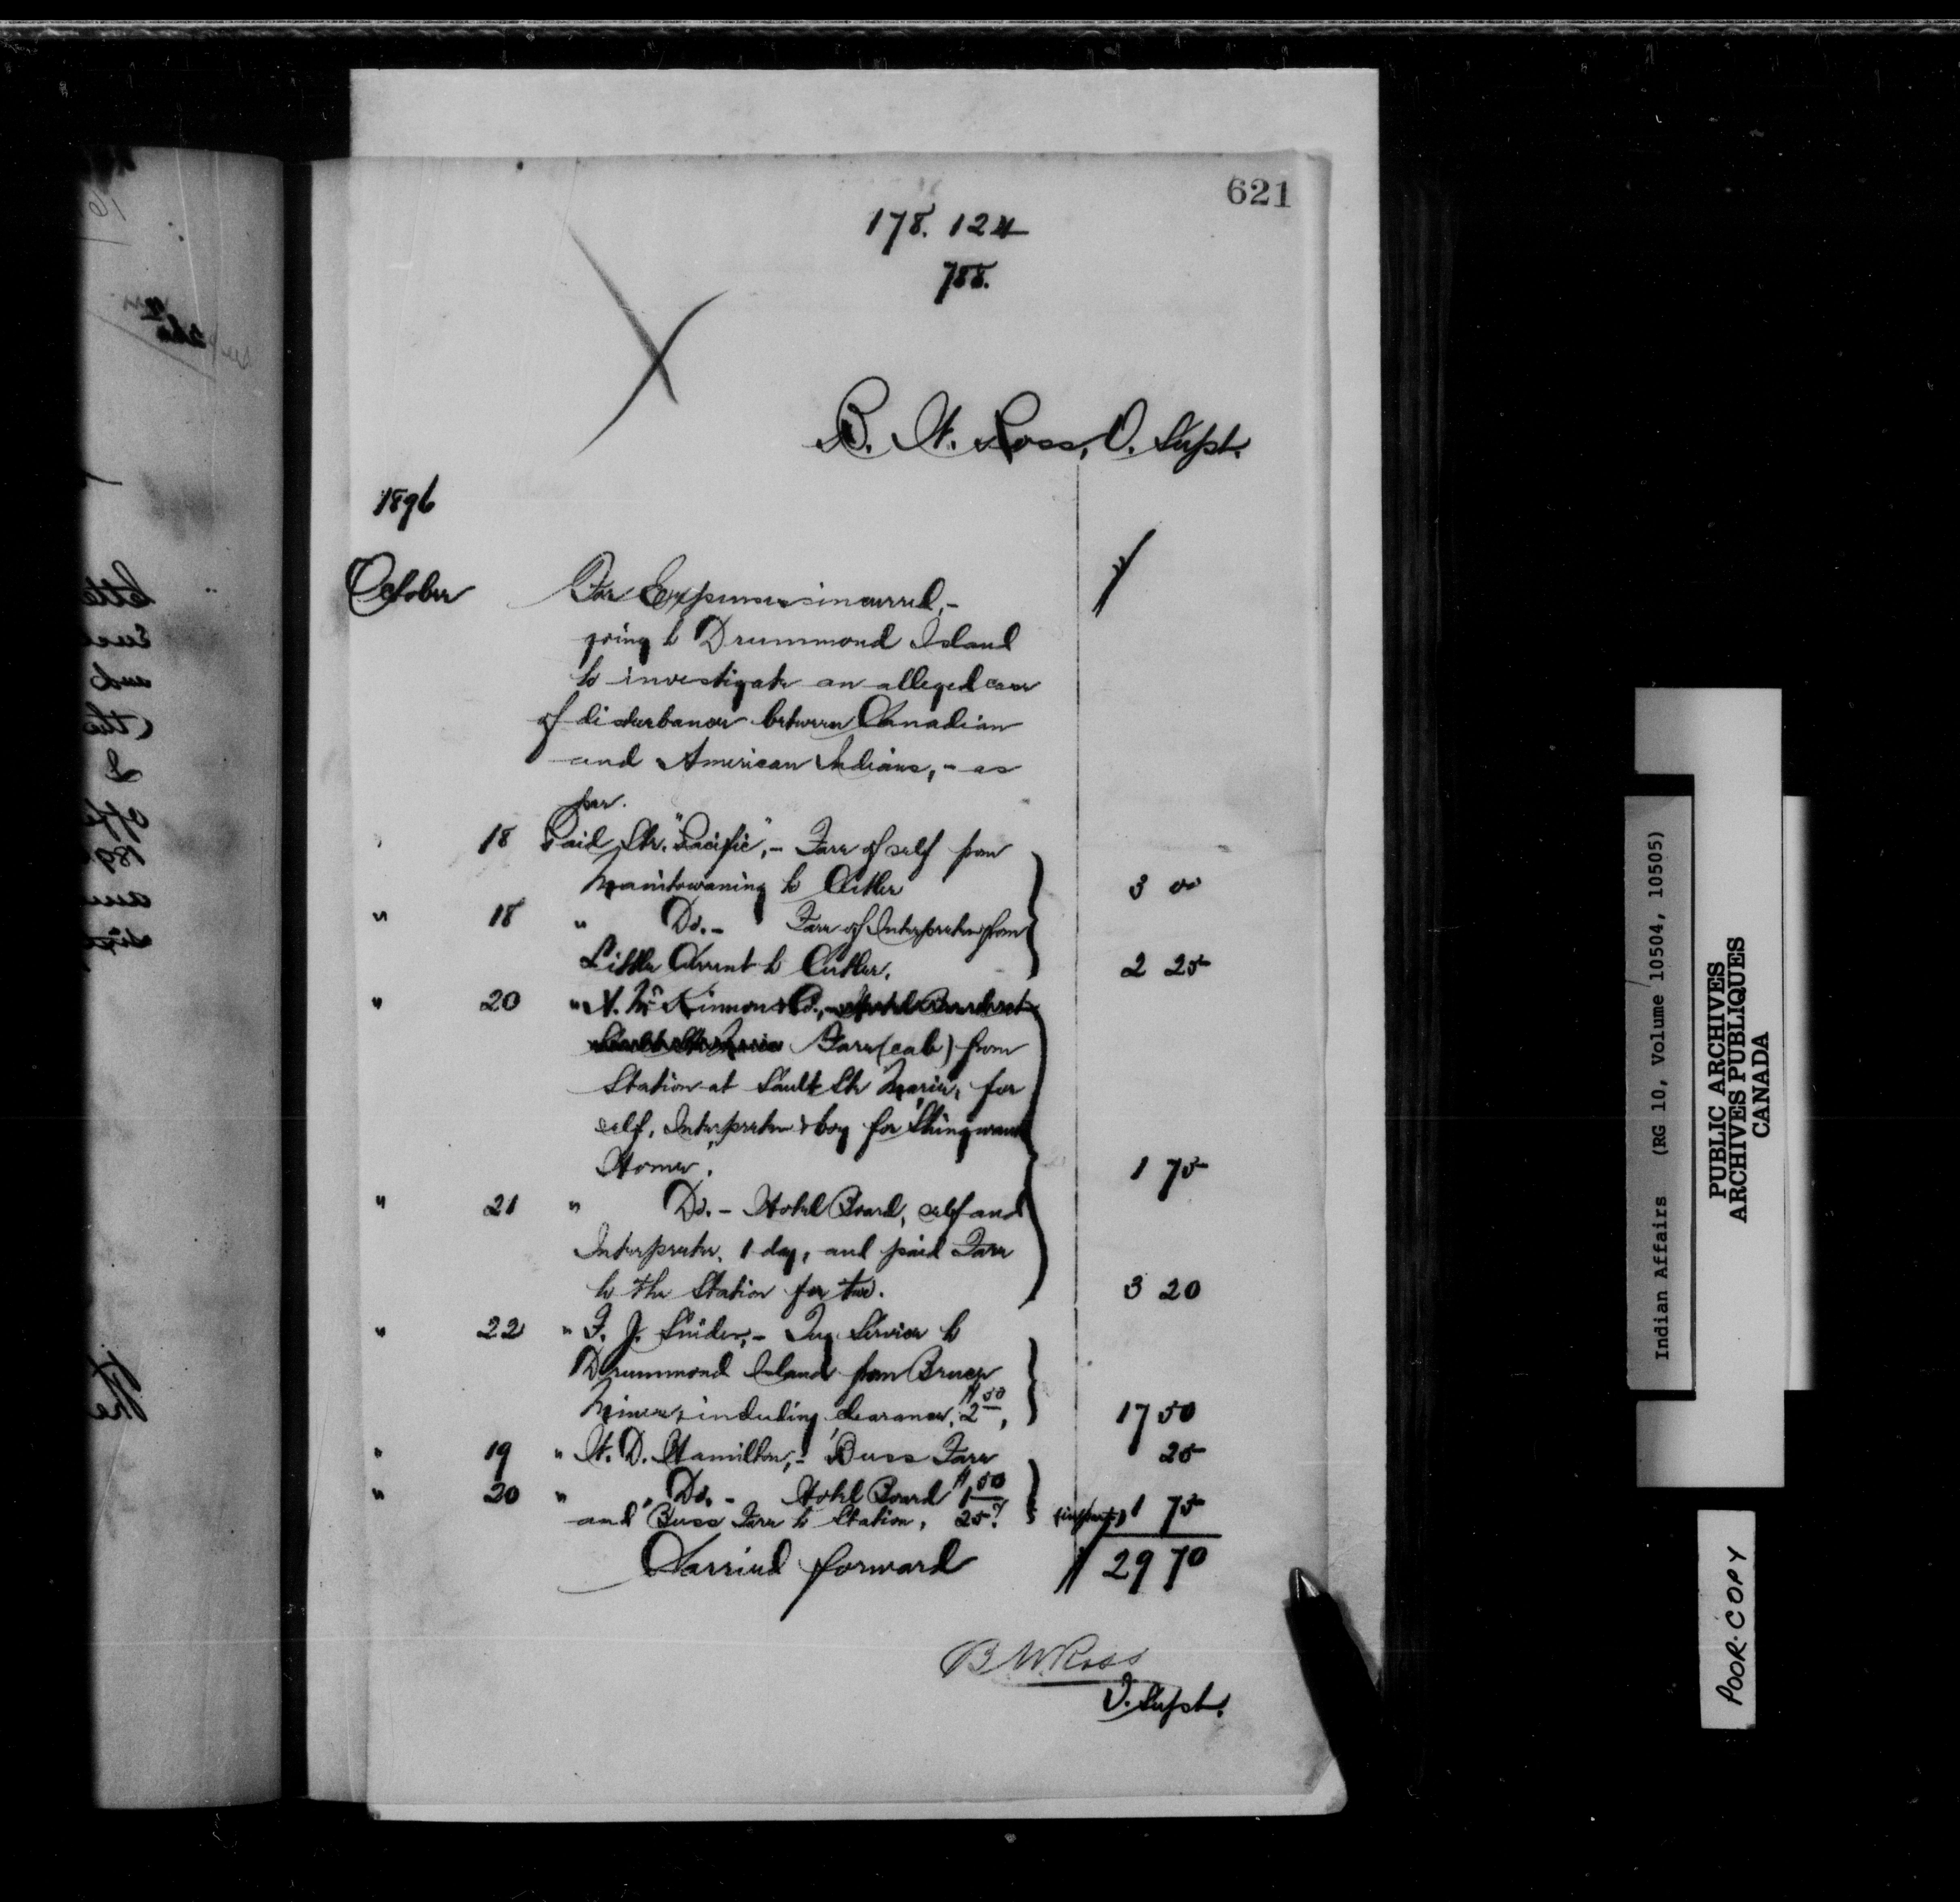 621
178. 124
788.
B. W. Ross, I. Supt.
1896
October For Expenses incurred, - $
going to Drummond Island
to investigate an alleged case
of disturbance between Canadian
and American Indians, - as
per.
18 Paid Str. "Pacific", - Fare of self from
Manitowaning to Cutler 3 00
" 18 " Do. - Fare of Interpreter from
Little Current to Cutler. 2 25
" 20 " Mc Kinnon & Co., - Hotel Board at
Sault Ste Marie Fare (cab) from
Station at Sault Ste Marie, for
self, Interpreter & boy for "Shingwauk
Home". 1 75
" 21 " Do. - Hotel Board, self and
Interpreter, 1 day, and paid Fare
to the Station for two. 3 20
" 22 " F. J. - Tug Service to
Drummond Island from Bruce
Mines, including clearance, $2 50, 17 50
" 19 " W. D. Hamilton, - Buss Fare 25
" 20 " Do. - Hotel Board $1 50
and Buss Fare to Station, 25 1 75
Carried forward $ 29 70
B W. Ross
I. Supt.
Indian Affairs (RG 10, Volume 10504, 10505)
PUBLIC ARCHIVES
ARCHIVES PUBLIQUES
CANADA
POOR COPY